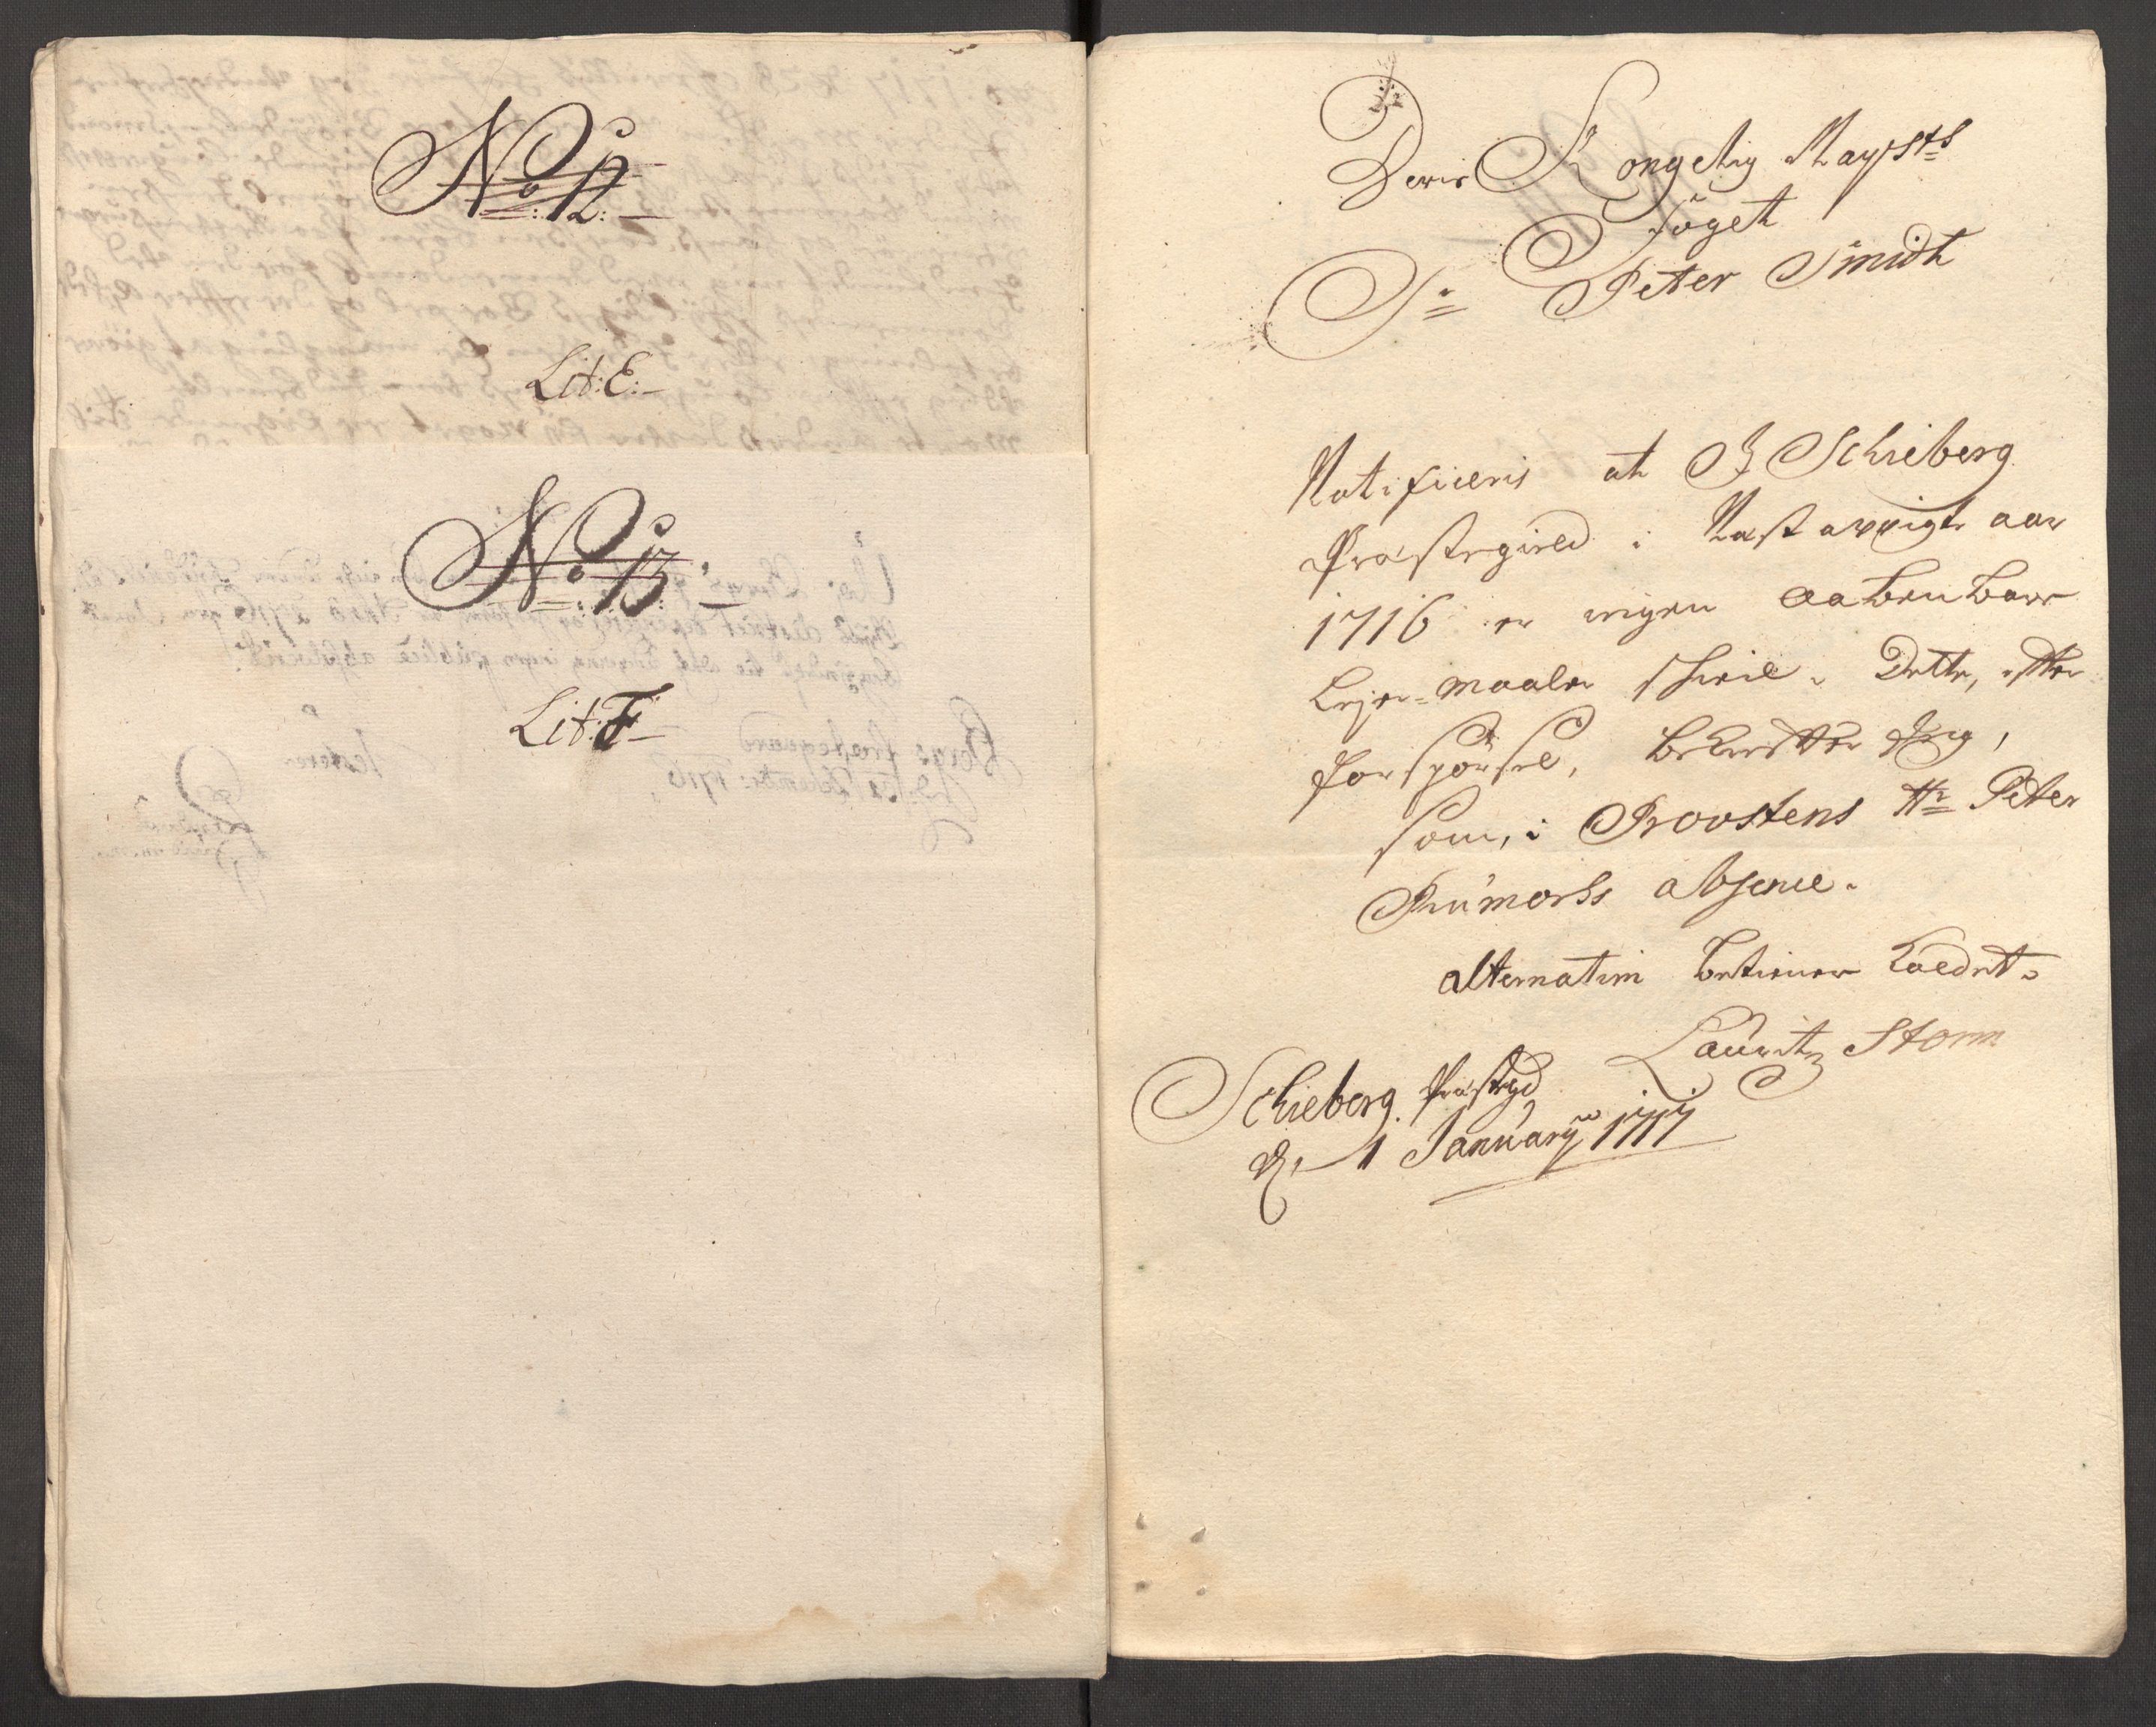 No: 12:
Lit: E:
No: 13:
Lit: F
Deris Kongelig Mayst:s
Foget
Sr: Peter Smidt
Notificeris at I Schieberg
Præstegield i Næst avvigte aar
1716 er ingen aabenbare
Lejer-maaler skeed. Dette, efter
forspørsel, bekrefter Jeg,
som, i Provstens Hr: Peter
absence.
alternatim betiener Kaldet.
Lauritz Storm
Schieberg Præstegd
d. 1 January 1717